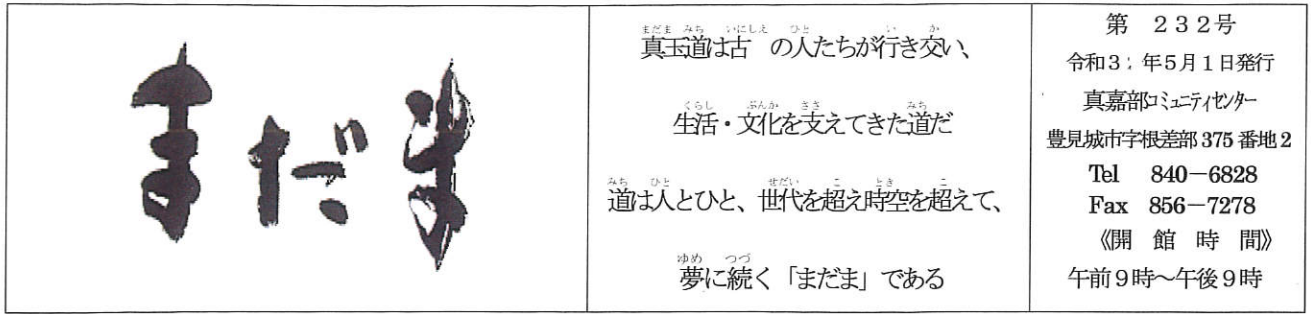 まだま
真玉道は古の人たちが行き交い、
生活・文化を支えてきた道だ
道は人とひと、世代を超え時空を超えて、
夢に続く「まだま」である
第 232号
令和3：年5月1日発行
真嘉部コミュニティセンター
豊見城市字根差部375番地2
Tel 840－6828
Fax 856－7278
《開 館 時 間》
午前9時～午後9時